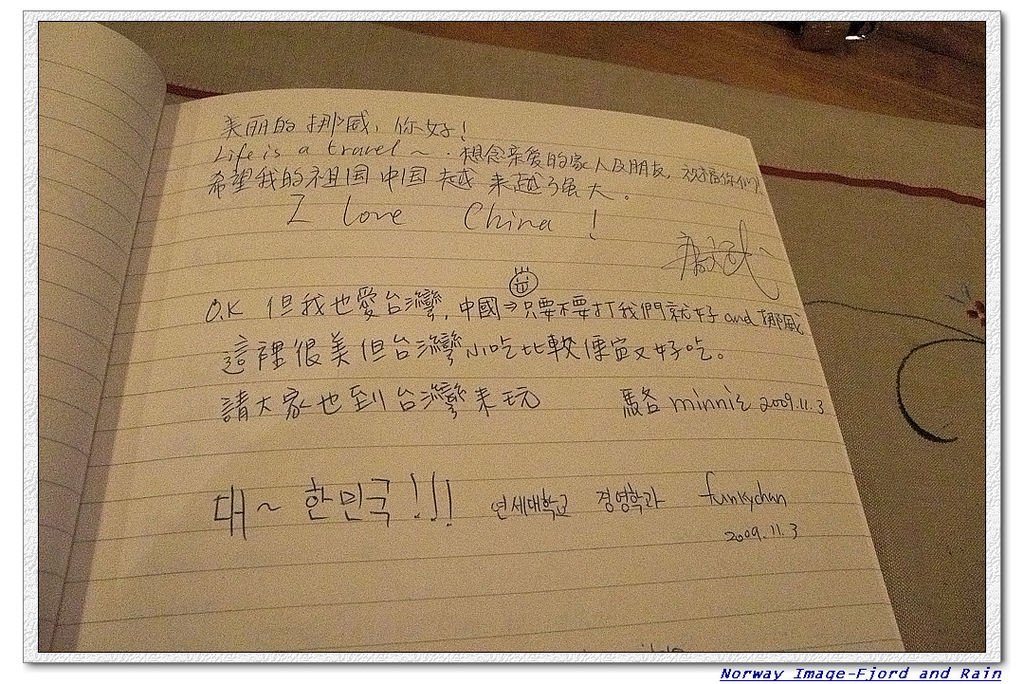 美丽的挪威，你好！
Life is a travel ~ . 想念亲爱的家人及朋友，祝福你们！
希望我的祖国中国越来越强大。
I love China !
O.K 但我也愛台灣，中國⇒只要不要打我們就好 and 挪威
這裡很美但台灣小吃比較便宜又好吃。
請大家也到台灣來玩 駱 minnie 2009.11.3
대~ 한민국!!! 연세대학교 경영학과 funkychun
2009.11.3
Norway Image-Fjord and Rain